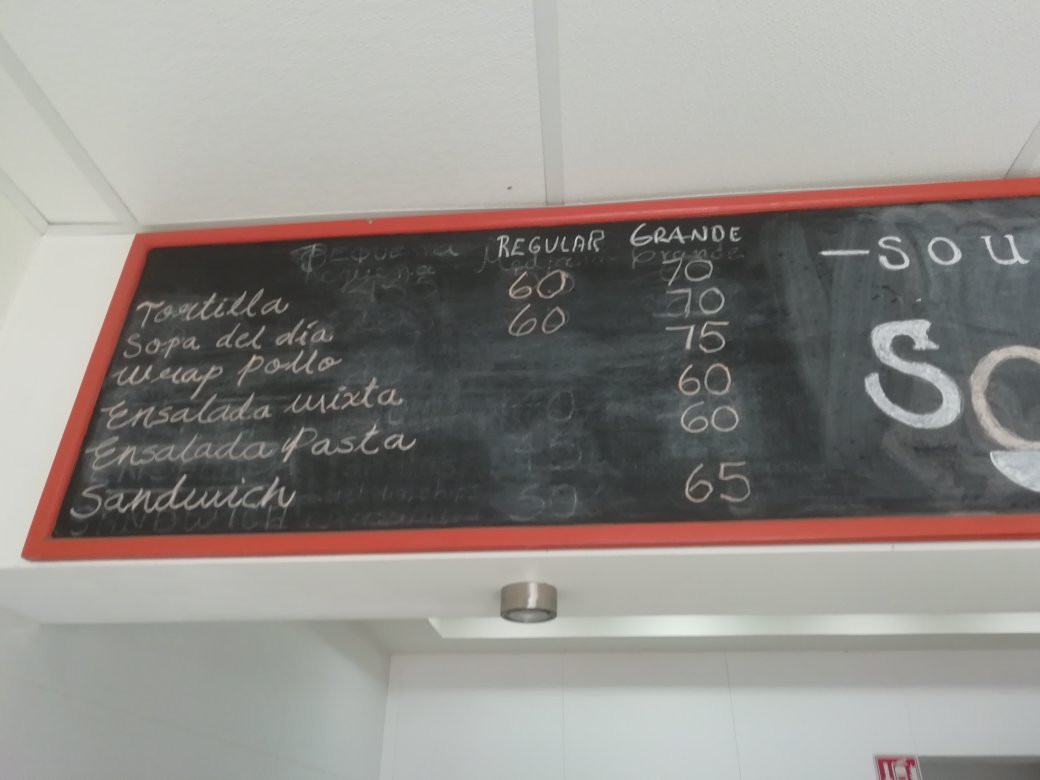 REGULAR GRANDE
Tortilla 60 70
Sopa del día 60 70
Wrap Pollo 75
Ensalada mixta 60
Ensalada Pasta 60
Sandwich 65
—SOU
SO